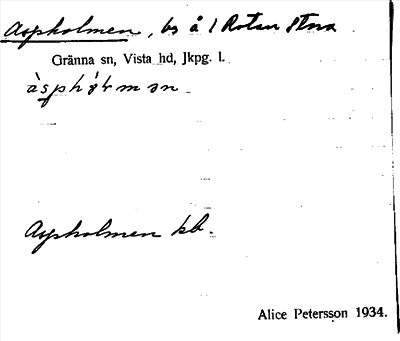 Aspholmen, bs å 1 Rotan Stna
Gränna sn, Vista hd, Jkpg. l.
Aspholmen kb.
Alice Petersson 1934.